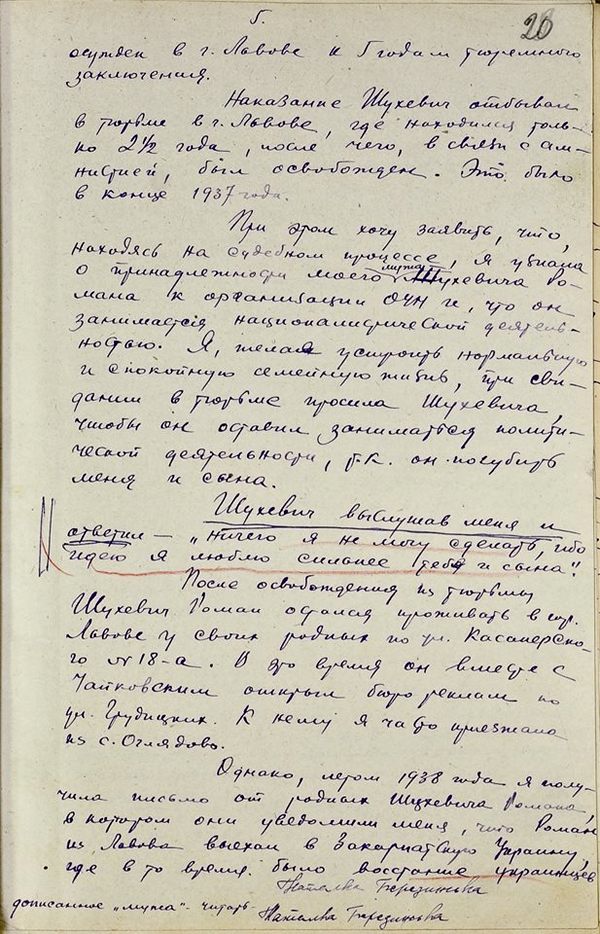 5.
26
осужден в г. Львове к 5 годам тюремного
заключения.
Наказание Шухевич отбывал
в тюрьме в г. Львове, где находился толь-
ко 2½ года, после чего, в связи с ам-
нистией, был освобожден. Это было
в конце 1937 года.
При этом хочу заявить, что,
находясь на судебном процессе, я узнала
мужа
о принадлежности моего Шухевича Ро-
мана к организации ОУН и, что он
занимается националистической деятель-
ностью. Я, желая устроить нормальную
и спокойную семейную жизнь, при сви-
дании в тюрьме просила Шухевича,
чтобы он оставил заниматься полити-
ческой деятельности, т.к. он погубить
меня и сына.
Шухевич выслушав меня и
ответил – „ничего я не могу сделать, ибо
идею я люблю сильнее тебя и сына".
После освобождения из тюрьмы
Шухевич Роман остался проживать в гор.
Львове у своих родных по ул. Касаперско-
го № 18-а. В это время он вместе с
Чайковским открыл бюро реклам по
ул. Грудицких. К нему я часто приезжала
из с. Оглядово.
Однако, летом 1938 года я полу-
чила письмо от родных Шухевича Романа,
в котором они уведомили меня, что Роман
из Львова выехал в Закарпатскую Украину,
где в то время было восстание украинцев
Наталка Березинська
дописанное „мужа" – читать
Наталка Березинська